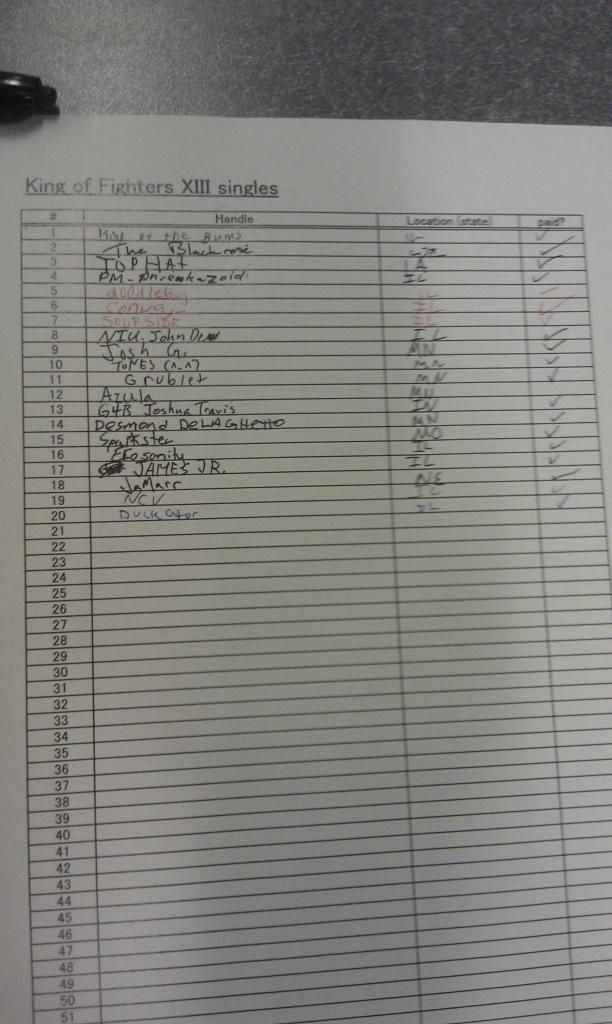 King of Fighters XIII singles
# Handle Location (state) paid?
1 King of the Bums IL
2 The Blackrose
3 TOPHAt IA
4 PM-Phreakazoid IL
5 doodleby IL
6 IL
7 SOUFSIDE IL
8 NIU. John Deux IL
9 Josh G. MN
10 TONES (^_^) MN
11 Grublet MN
12 Azula MO
13 G4B Joshua Travis IN
14 Desmond DeLAGHetto MN
15 MO
16 Efosonity IL
17 JAMES JR. IL
18 JaMarr NE
19 NCV IL
20 Duckator IL
21
22
23
24
25
26
27
28
29
30
31
32
33
34
35
36
37
38
39
40
41
42
43
44
45
46
47
48
49
50
51